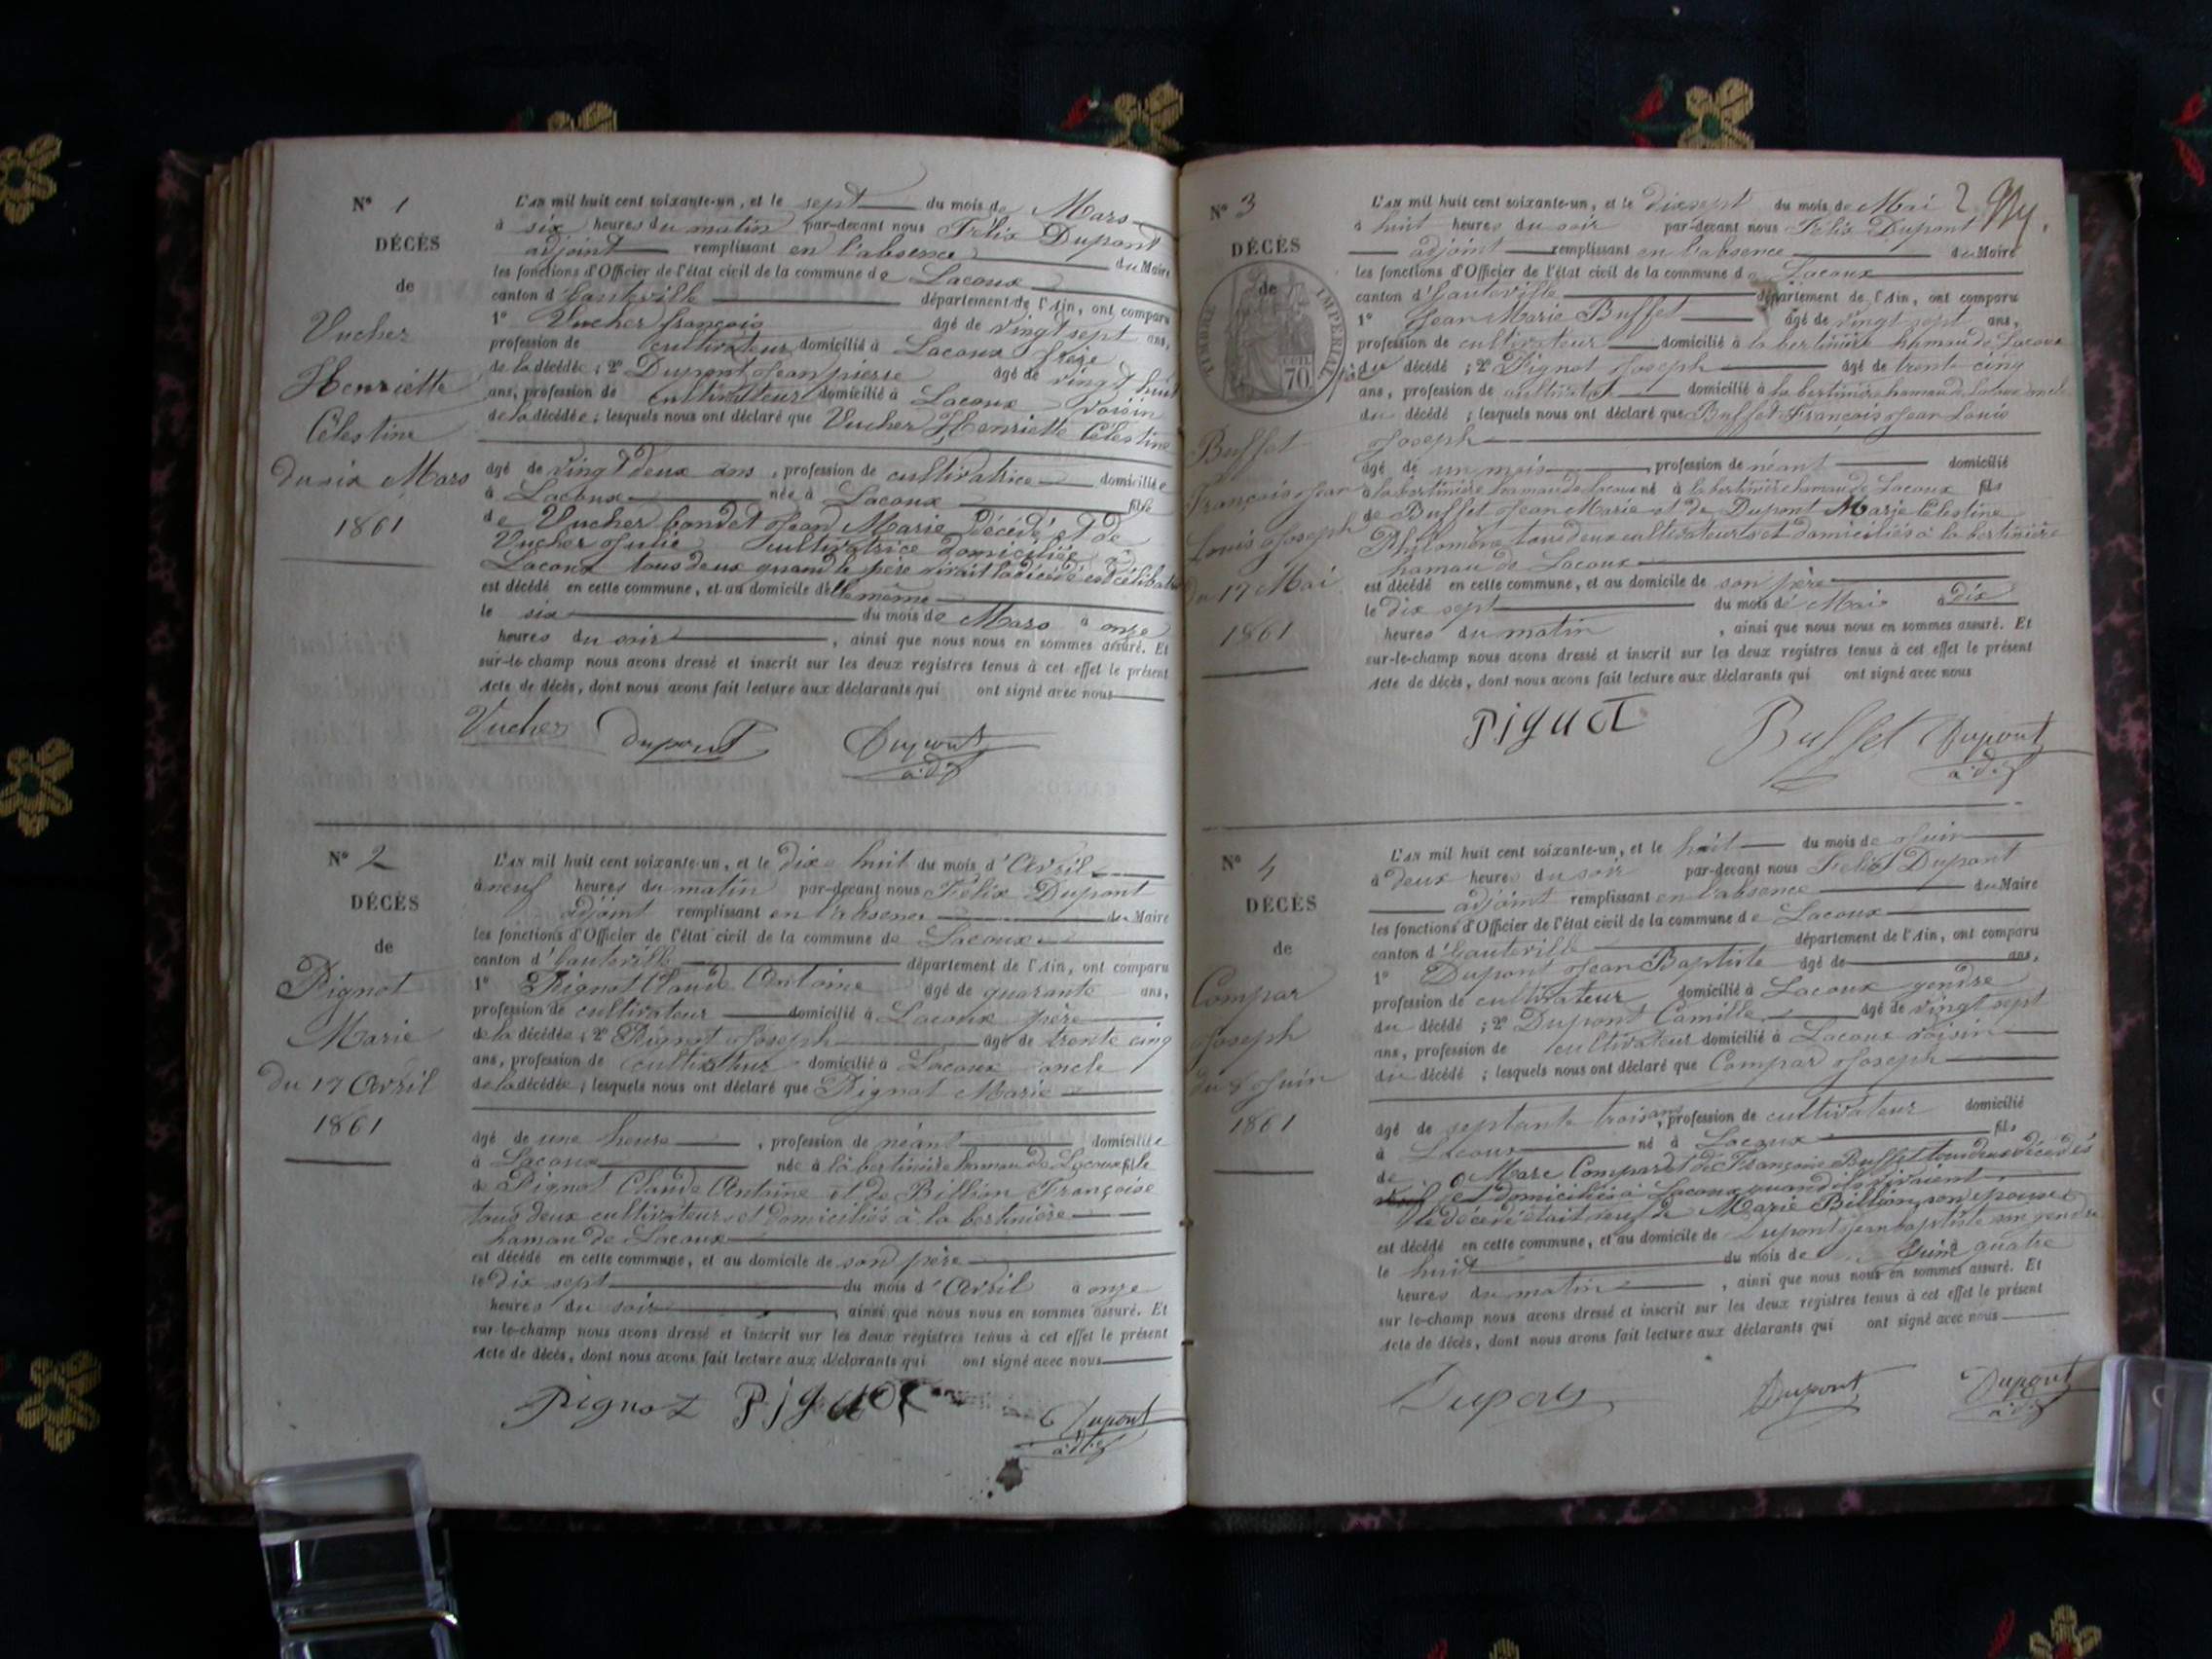 N° 1
DÉCÈS
de
Vucher
Henriette
Célestine
du six Mars
1861
L'AN mil huit cent soixante-un, et le sept du mois de Mars
à six heures du matin par-devant nous Félix Dupont
adjoint remplissant en l'absence du Maire
les fonctions d'Officier de l'état civil de la commune de Lacoux
canton d'hauteville département de l'Ain, ont comparu
1° Vucher françois âgé de vingt sept ans,
profession de cultivateur domicilié à Lacoux frère
de la décédée ; 2° Dupont Jean pierre âgé de vingt huit
ans, profession de cultivateur domicilié à Lacoux voisin
de la décédée ; lesquels nous ont déclaré que Vucher Henriette Célestine
âgé de vingt deux ans , profession de cultivatrice domiciliée
à Lacoux née à Lacoux fille
de Vucher bondet Jean Marie décédé et de
Vucher Julie cultivatrice domiciliée à
Lacoux tous deux quand le père vivait la décédé est célibataire
est décédé en cette commune, et au domicile de le même
le six du mois de Mars à onze
heures du soir , ainsi que nous nous en sommes assuré. Et
sur-le-champ nous avons dressé et inscrit sur les deux registres tenus à cet effet le présent
Acte de décès, dont nous avons fait lecture aux déclarants qui ont signé avec nous
Vucher dupont Dupont
adj
N° 2
DÉCÈS
de
Pignot
Marie
du 17 Avril
1861
L'AN mil huit cent soixante-un, et le dix huit du mois d'Avril
à neuf heures du matin par-devant nous Félix Dupont
adjoint remplissant en l'absence du Maire
les fonctions d'Officier de l'état civil de la commune de Lacoux
canton d'hauteville département de l'Ain, ont comparu
1° Pignot Claude Antoine âgé de quarante ans,
profession de cultivateur domicilié à Lacoux père
de la décédée ; 2° Pignot Joseph âgé de trente cinq
ans, profession de cultivateur domicilié à Lacoux oncle
de la décédée ; lesquels nous ont déclaré que Pignot Marie
âgé de une heure , profession de néant domiciliée
à Lacoux née à la bertinière hamau de Lacoux fille
de Pignot Claude Antoine et de Billion Françoise
tous deux cultivateurs et domiciliés à la bertinière
hamau de Lacoux
est décédé en cette commune, et au domicile de son père
le dix sept du mois d'Avril à onze
heures du soir , ainsi que nous nous en sommes assuré. Et
sur-le-champ nous avons dressé et inscrit sur les deux registres tenus à cet effet le présent
Acte de décès, dont nous avons fait lecture aux déclarants qui ont signé avec nous
Pignot Pignot Dupont
adj
N° 3
DÉCÈS
de
TIMBRE IMPÉRIAL
70
Buffet
François Jean
Louis Joseph
du 17 Mai
1861
L'AN mil huit cent soixante-un, et le dix sept du mois de Mai 2
à huit heures du soir par-devant nous Félix Dupont
adjoint remplissant en l'absence du Maire
les fonctions d'Officier de l'état civil de la commune de Lacoux
canton d'hauteville département de l'Ain, ont comparu
1° Jean Marie Buffet âgé de vingt sept ans,
profession de cultivateur domicilié à la bertinière hamau de Lacoux
du décédé ; 2° Pignot Joseph âgé de trente cinq
ans, profession de cultivateur domicilié à la bertinière hamau de Lacoux
du décédé ; lesquels nous ont déclaré que Buffet François Jean Louis
Joseph
âgé de un mois , profession de néant domicilié
à la bertinière hamau de Lacoux né à la bertinière hamau de Lacoux fils
de Buffet Jean Marie et de Dupont Marie Célestine
Philomène tous deux cultivateurs et domiciliés à la bertinière
hamau de Lacoux
est décédé en cette commune, et au domicile de son père
le dix sept du mois de Mai à dix
heures du matin , ainsi que nous nous en sommes assuré. Et
sur-le-champ nous avons dressé et inscrit sur les deux registres tenus à cet effet le présent
Acte de décès, dont nous avons fait lecture aux déclarants qui ont signé avec nous
Pignot Buffet Dupont
adj
N° 4
DÉCÈS
de
Compar
Joseph
du 8 Juin
1861
L'AN mil huit cent soixante-un, et le huit du mois de Juin
à deux heures du soir par-devant nous Félix Dupont
adjoint remplissant en l'absence du Maire
les fonctions d'Officier de l'état civil de la commune de Lacoux
canton d'hauteville département de l'Ain, ont comparu
1° Dupont Jean Baptiste âgé de ans,
profession de cultivateur domicilié à Lacoux gendre
du décédé ; 2° Dupont Camille âgé de vingt sept
ans, profession de cultivateur domicilié à Lacoux voisin
du décédé ; lesquels nous ont déclaré que Compar Joseph
âgé de septante trois ans, profession de cultivateur domicilié
à Lacoux né à Lacoux fils
de Marc Compar et de Françoise Buffet tous deux décédés
et domiciliés à Lacoux quand ils vivaient
le décédé était veuf de Marie Billion son épouse
est décédé en cette commune, et au domicile de Dupont jean baptiste son gendre
le huit du mois de Juin à quatre
heures du matin , ainsi que nous nous en sommes assuré. Et
sur-le-champ nous avons dressé et inscrit sur les deux registres tenus à cet effet le présent
Acte de décès, dont nous avons fait lecture aux déclarants qui ont signé avec nous
Dupont Dupont
adj